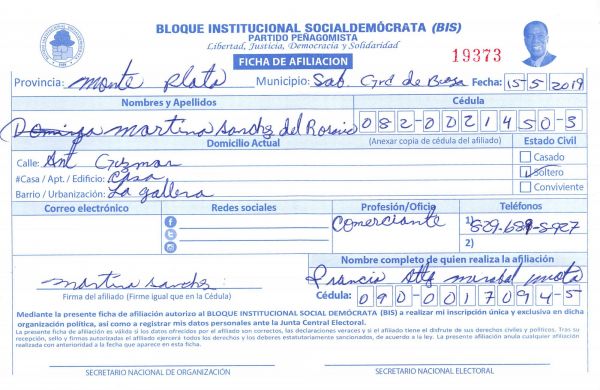 BLOQUE INSTITUCIONAL SOCIALDEMÓCRATA (BIS)
PARTIDO PEÑAGOMISTA
Libertad, Justicia, Democracia y Solidaridad
FICHA DE AFILIACION
19373
Provincia: Monte Plata Municipio: Sab Grd de Boya Fecha: 15-5 2019
Nombres y Apellidos Cédula
Dominga martina Sanchez del Rosario 082-0021450-3
Domicilio Actual (Anexar copia de cédula del afiliado) Estado Civil
Calle: Ant Guzman Casado
#Casa / Apt. / Edificio: Casa Soltero
Barrio / Urbanización: La gallera Conviviente
Correo electrónico Redes sociales Profesión/Oficio Teléfonos
Comerciante 1) 829-689-8927
2)
Nombre completo de quien realiza la afiliación
martina sanchez
Firma del afiliado (Firme igual que en la Cédula) Cédula: 090-0017094-5
Mediante la presente ficha de afiliación autorizo al BLOQUE INSTITUCIONAL SOCIAL DEMÓCRATA (BIS) a realizar mi inscripción única y exclusiva en dicha
organización política, así como a registrar mis datos personales ante la Junta Central Electoral.
La presente ficha de afiliación es válida si los datos ofrecidos por el afiliado son correctos, las declaraciones veraces y si el afiliado tiene el disfrute de sus derechos civiles y políticos. Tras su
recepción, sello y firmas autorizadas el afiliado ejercerá todos los derechos y los deberes estatutariamente sancionados, de acuerdo a la ley. La presente afiliación anula cualquier afiliación
realizada con anterioridad a la fecha que aparece en esta ficha.
SECRETARIO NACIONAL DE ORGANIZACIÓN SECRETARIO NACIONAL ELECTORAL